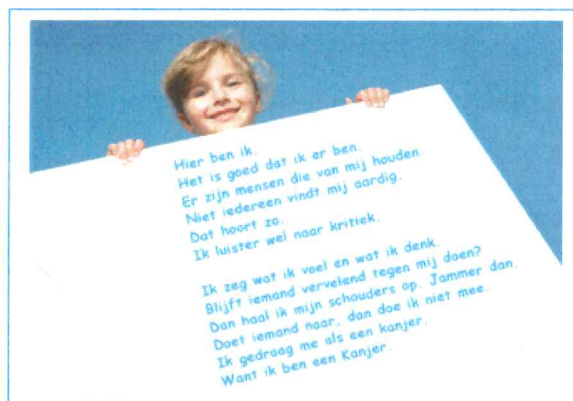 Hier ben ik.
Het is goed dat ik er ben.
Er zijn mensen die van mij houden
Niet iedereen vindt mij aardig.
Dat hoort zo.
Ik luister wel naar kritiek.
Ik zeg wat ik voel en wat ik denk.
Blijft iemand vervelend tegen mij doen?
Dan haal ik mijn schouders op. Jammer dan.
Doet iemand naar, dan doe ik niet mee.
Ik gedraag me als een kanjer.
Want ik ben een Kanjer.